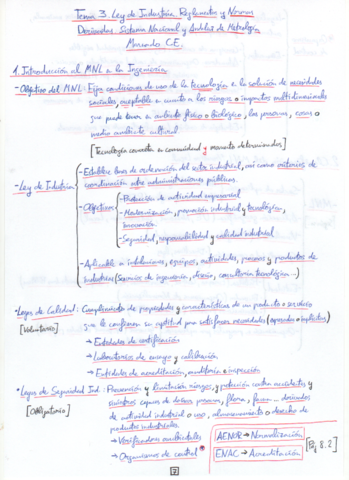 Tema 3. Ley de Industria. Reglamentos y Normas
Derivadas. Sistema Nacional y Andaluz de Metrología
Marcado C.E.
1. Introducción al MNL a la Ingeniería
- Objetivo del MNL: Fijar condiciones de uso de la tecnología a la solución de necesidades
sociales, aceptable en cuanto a los riesgos o impactos multidimensionales
que puede tener en ambiente físico o biológico, las personas, cosas o
medio ambiente cultural
[Tecnología concreta en comunidad y momento determinados]
- Ley de Industria
- Establece bases de ordenación del sector industrial, así como criterios de
coordinación entre administraciones públicas.
- Objetivos
- Protección de actividad empresarial
- Modernización, promoción industrial y tecnológica,
Innovación
- Seguridad, responsabilidad y calidad industrial
- Aplicable a instalaciones, equipos, actividades, procesos y productos de
industrias (Servicios de ingeniería, diseño, consultoría tecnológica...)
• Logos de Calidad: Cumplimiento de propiedades y características de un producto o servicio
[Voluntario]
que le confieren su aptitud para satisfacer necesidades (expresadas o implícitas)
→ Entidades de certificación
→ Laboratorios de ensayo y calibración
→ Entidades de acreditación, auditoría o inspección
• Logos de Seguridad Ind.: Prevención y limitación riesgos, y protección contra accidentes y
[Obligatorio]
siniestros capaces de dañar personas, flora, fauna... derivados
de actividad industrial o uso, almacenamiento o desecho de
productos industriales
→ Verificadores ambientales
→ Organismos de control
AENOR → Normalización
ENAC → Acreditación
[Pg 8.2]
2